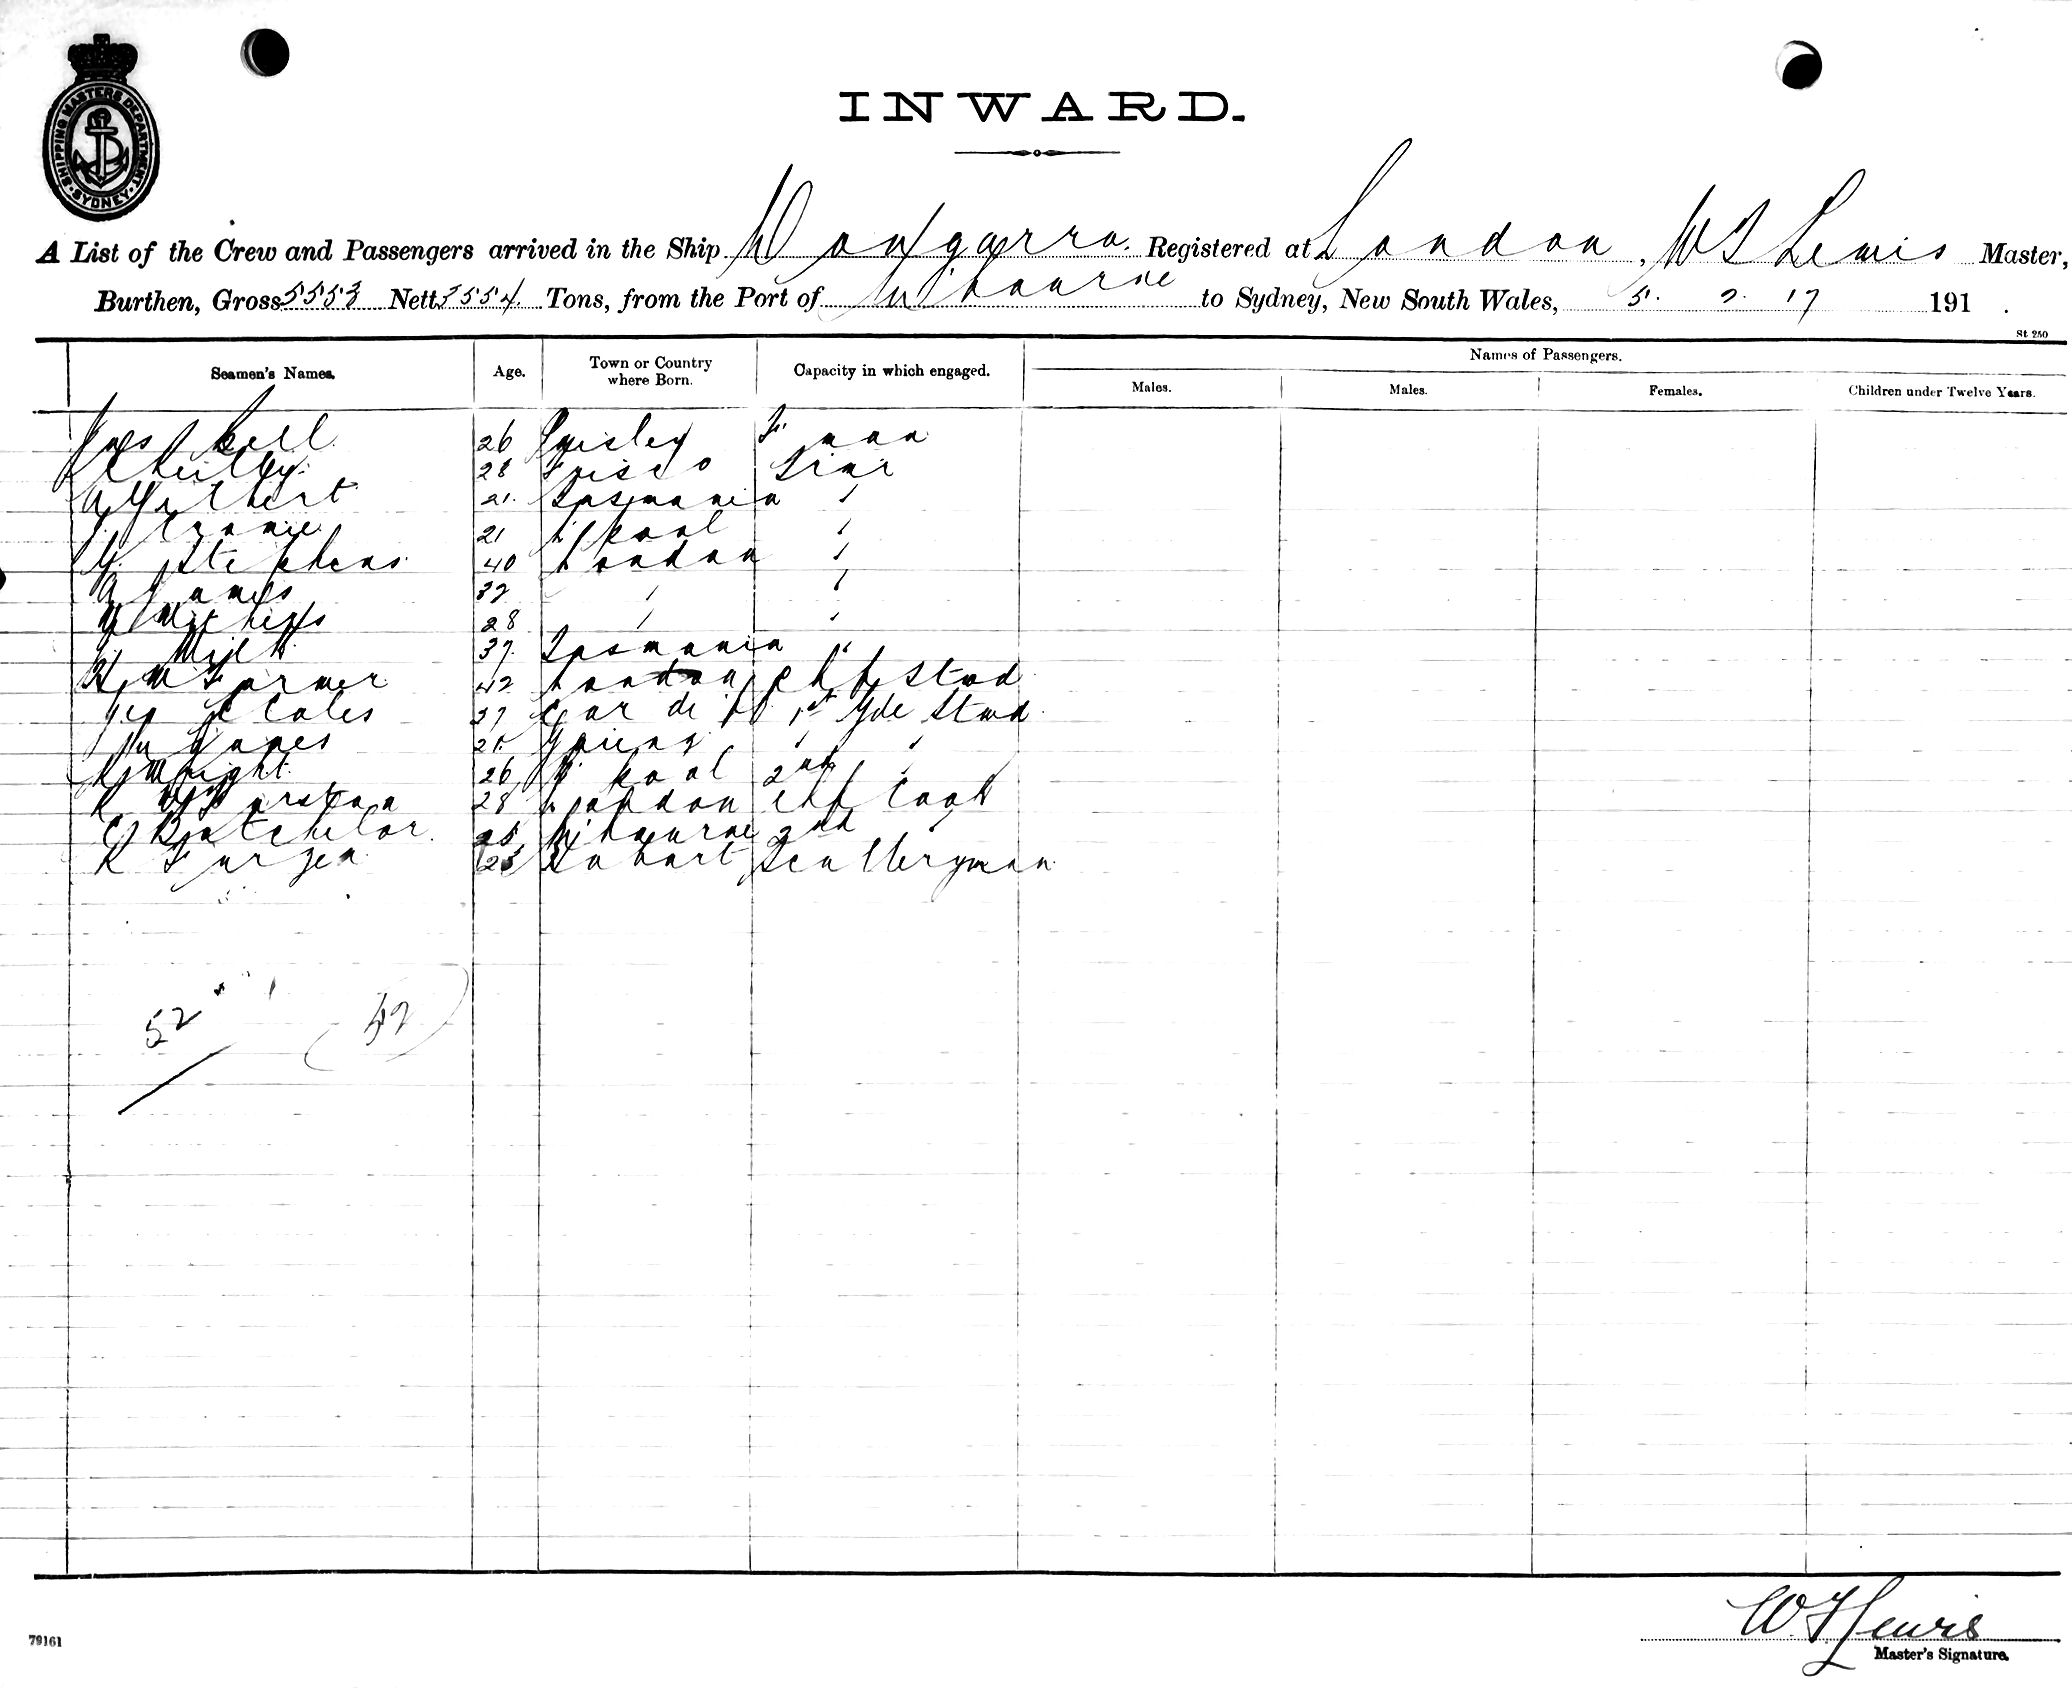 SHIPPING MASTERS DEPARTMENT SYDNEY
INWARD.
A List of the Crew and Passengers arrived in the Ship Registered at London, W T Lewis Master,
Burthen, Gross 5553 Nett 3554 Tons, from the Port of Mlbourne to Sydney, New South Wales, 5. 2. 17 191 .
St 250
Seamen's Names. Age. Town or Country where Born. Capacity in which engaged. Names of Passengers.
Males. Males. Females. Children under Twelve Years.
Jas Bell 26 Paisley F'man
28 Frisco Trimr
A Gilbert 21 Tasmania "
21 L'pool "
G Stephens 40 London "
A James 32 " "
28 " "
37 Tasmania "
H W Farmer 42 London Chf Stwd
37 Cardiff 1st Gde Stwd
" "
R J Wright 26 L'pool 2nd "
28 London Chf Cook
C Batchelor 25 Mlbourne 2nd "
R Furzen 23 Hobart Sculleryman
52
(52)
79161
W. T. Lewis
Master's Signature.